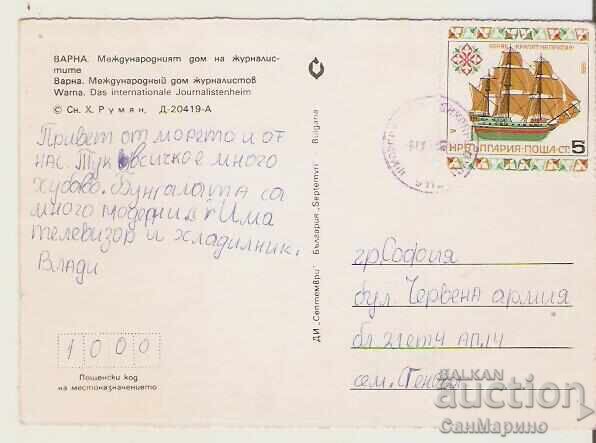 ВАРНА. Международният дом на журналис-
тите
Варна. Международный дом журналистов
Warna. Das internationale Journalistenheim
© Сн. Х. Румян, Д-20419-А
Привет от морето и от
нас. Тук всичко е много
хубаво. Бунгалата са
много модерни. Има
телевизор и хладилник.
Влади
1000
Пощенски код
на местоназначението
ДИ „Септември" България „Septemvri" Bulgaria
НР БЪЛГАРИЯ·ПОЩА·СТ. 5
гр. София
бул. Червена армия
бл. 21 ет 4 ап. 14
сем.
BALKAN
auction
СанМарино